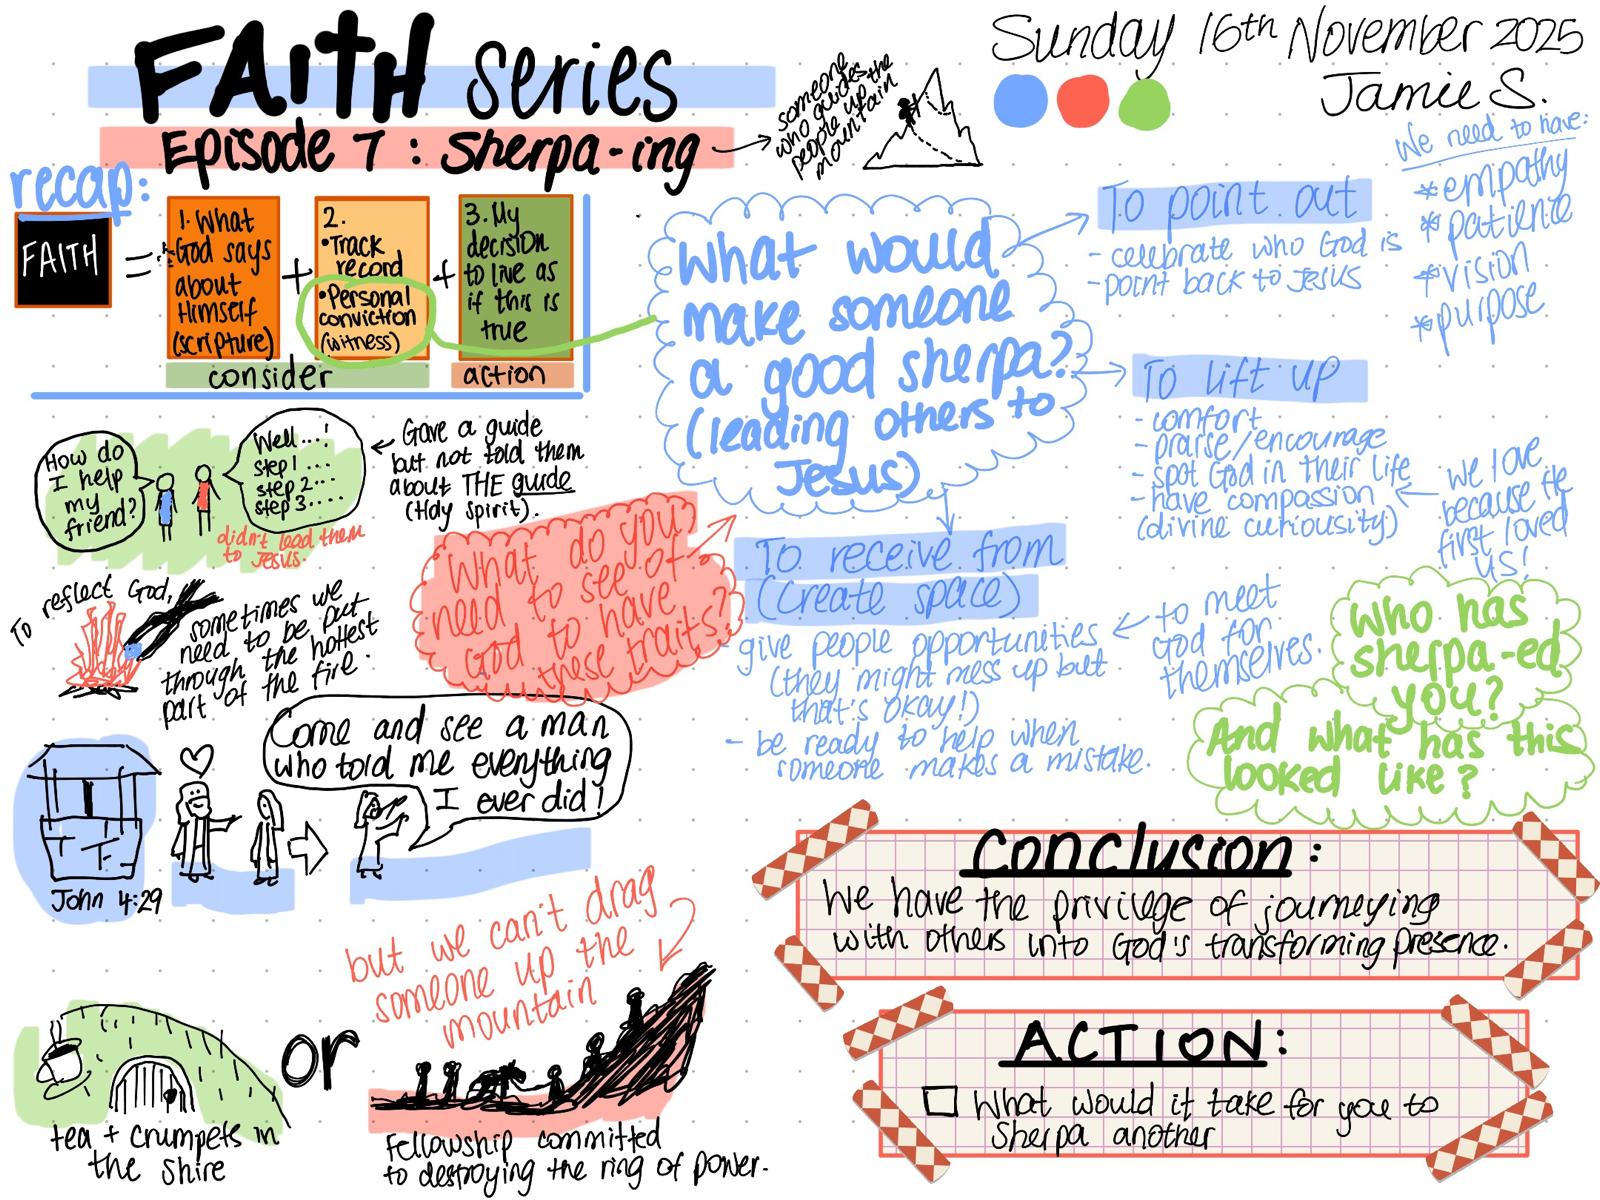 FAITH series
Episode 7 : Sherpa-ing
someone
who guides
people up the
mountain
Sunday 16th November 2025
Jamie S.
recap:
FAITH
=
1. What
God says
about
Himself
(scripture)
+
2.
•Track
record
•Personal
conviction
(witness)
+
3. My
decision
to live as
if this is
true
consider
action
What would
make someone
a good sherpa?
(leading others to
Jesus)
To point out
- celebrate who God is
- point back to Jesus
We need to have:
*empathy
*patience
*vision
*purpose
To lift up
- comfort
- praise/encourage
- spot God in their life
- have compassion
(divine curiousity)
we love
because He
first loved
us!
How do
I help
my
friend?
Well...!
step 1....
step 2....
step 3.....
didn't lead them
to Jesus.
Gave a guide
but not told them
about THE guide
(Holy Spirit).
What do you
need to see of
God to have
these traits?
To receive from
(create space)
- give people opportunities
(they might mess up but
that's okay!)
- be ready to help when
someone makes a mistake.
to meet
God for
themselves.
Who has
sherpa-ed
you?
And what has this
looked like?
To reflect God,
sometimes we
need to be put
through the hottest
part of the fire.
Come and see a man
who told me everything
I ever did!
John 4:29
but we can't drag
someone up the
mountain
tea + crumpets in
the shire
or
Fellowship committed
to destroying the ring of power.
Conclusion:
We have the privilege of journeying
with others into God's transforming presence.
ACTION:
What would it take for you to
Sherpa another